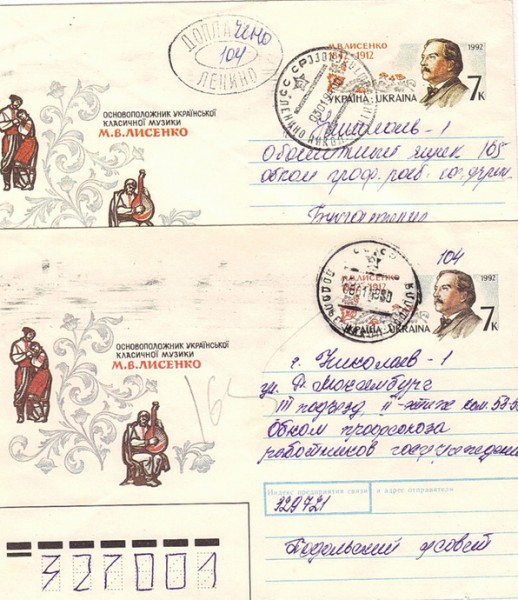 ДОПЛАЧЕНО
104
ЛЕНИНО
М.В.ЛИСЕНКО
1842-1912
1992
УКРАЇНА · UKRAINA
7к
ОСНОВОПОЛОЖНИК УКРАЇНСЬКОЇ
КЛАСИЧНОЇ МУЗИКИ
М.В.ЛИСЕНКО
Николаев-1
ящик 165
обком проф. раб.
104
М.В.ЛИСЕНКО
1912
1992
УКРАЇНА · UKRAINA
7к
ОСНОВОПОЛОЖНИК УКРАЇНСЬКОЇ
КЛАСИЧНОЇ МУЗИКИ
М.В.ЛИСЕНКО
г. Николаев-1
ул. Р. Люксембург
III подъезд, II-этаж ком.
Обком профсоюза
работников госучреждений
Индекс предприятия связи и адрес отправителя
329721
Подольский
327001